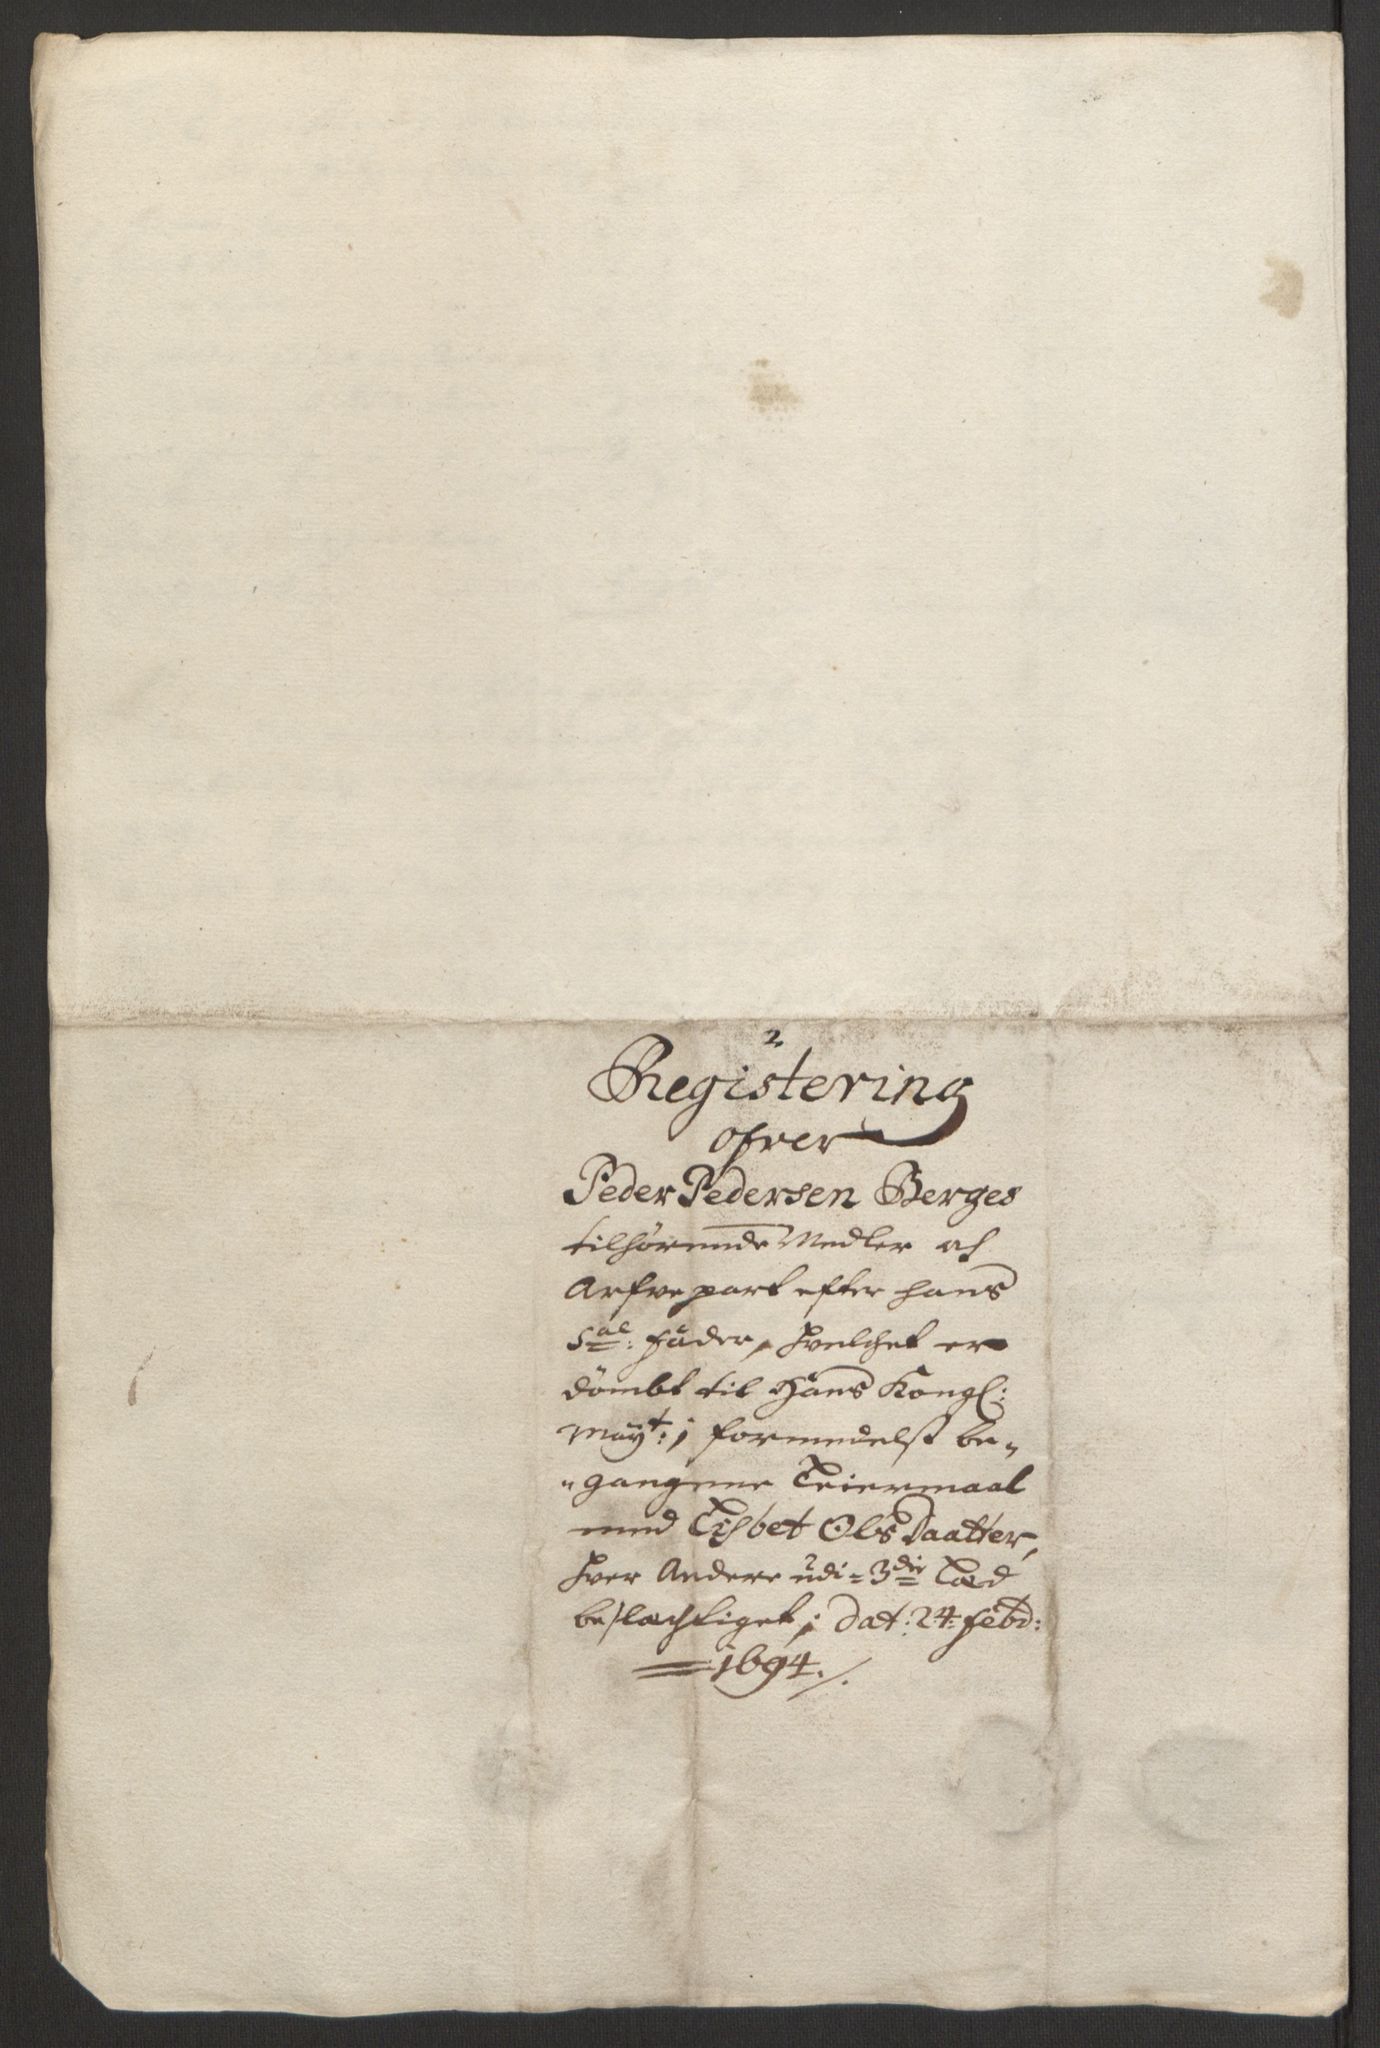 2
Registering
ofver
Peder Pedersen Berges
tilhörende Medler af
Arfve part efter hans
Sal: fader, hvelchet er
dömbt til Hans Kongl:
Mayt:, formedelst be-
gangene Leiermaal
med Lisbet Olsdaatter,
hver Andere udi 3die Leed
beslachtiget, Dat: 24: febr:
1694./.